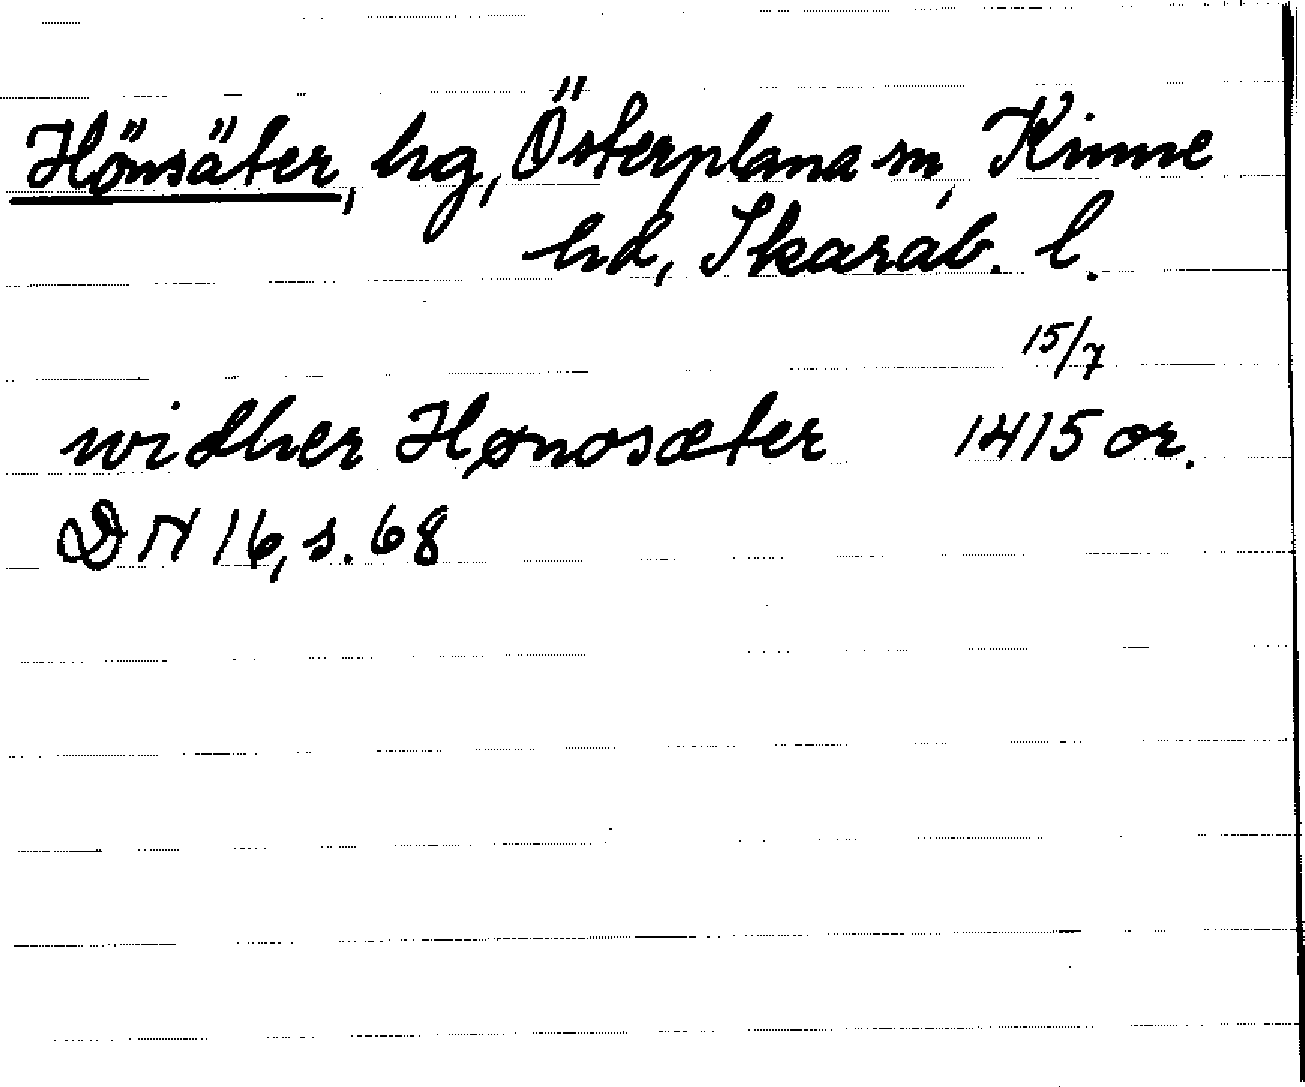 Hönsäter, hg, Österplana sn, Kinne
hd, Skarab. l.
15/7
widher Hønosæter 1415 or.
DN 16, s. 68